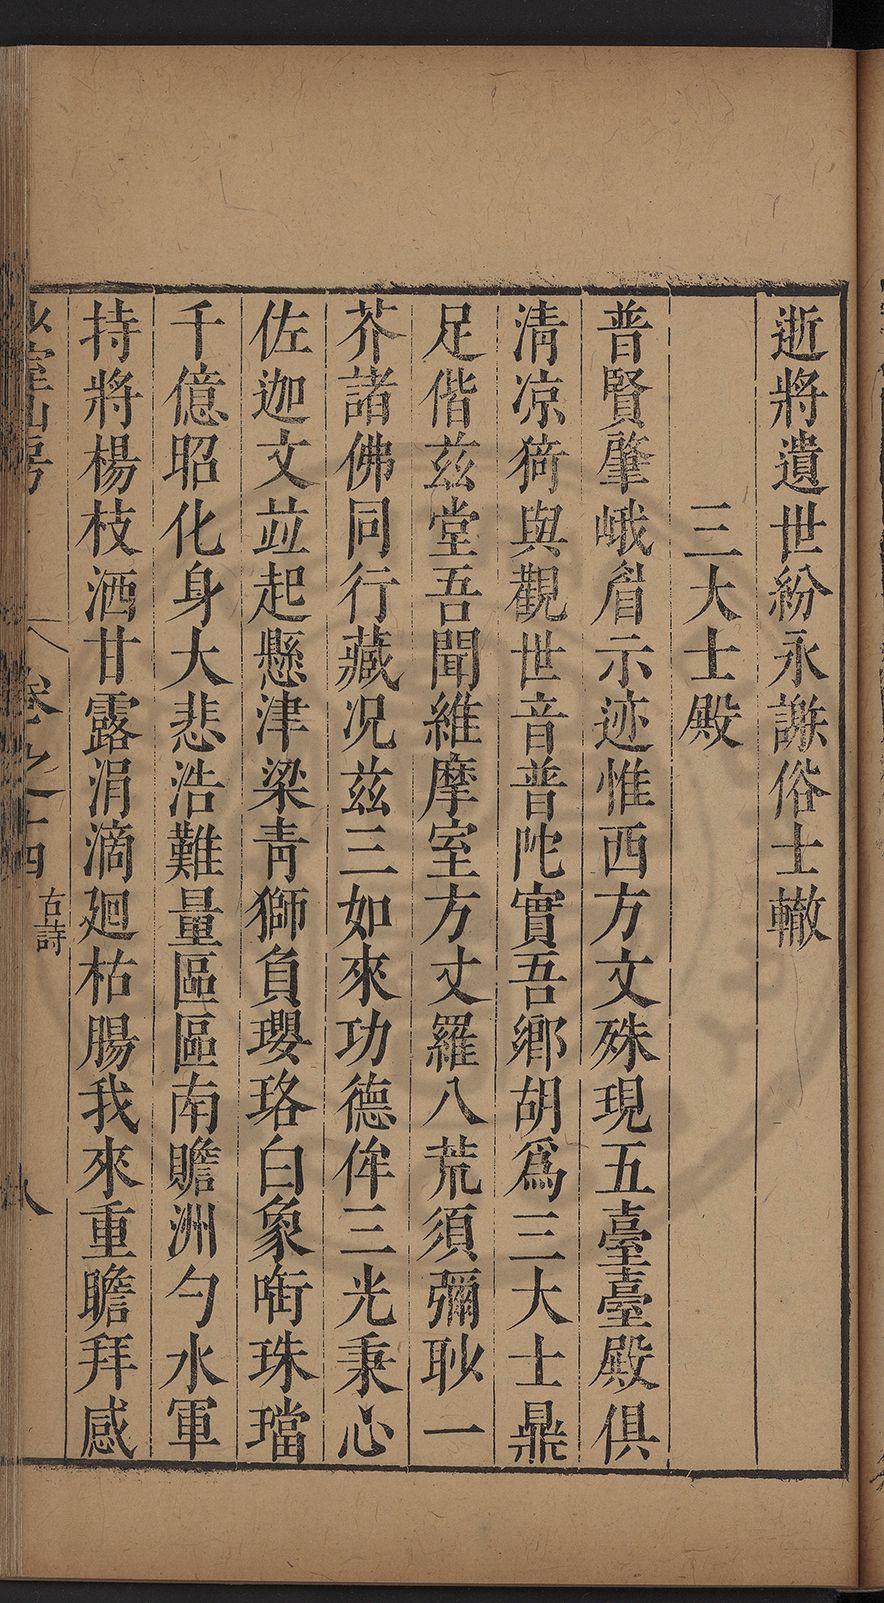 逝將遺世紛永謝俗士轍
三大士殿
普賢肇峨眉示迹惟西方文殊現五臺臺殿俱
清凉猗與觀世音普陀實吾鄉胡爲三大士鼎
足偕兹堂吾聞維摩室方丈羅八荒須彌耿一
芥諸佛同行藏况兹三如來功德侔三光秉心
佐迦文竝起懸津梁靑獅負瓔珞白象㗸珠璫
千億昭化身大悲浩難量區區南贍洲勺水軍
持將楊枝洒甘露涓滴廻枯腸我來重瞻拜感
室山房
卷之十四
古詩
八